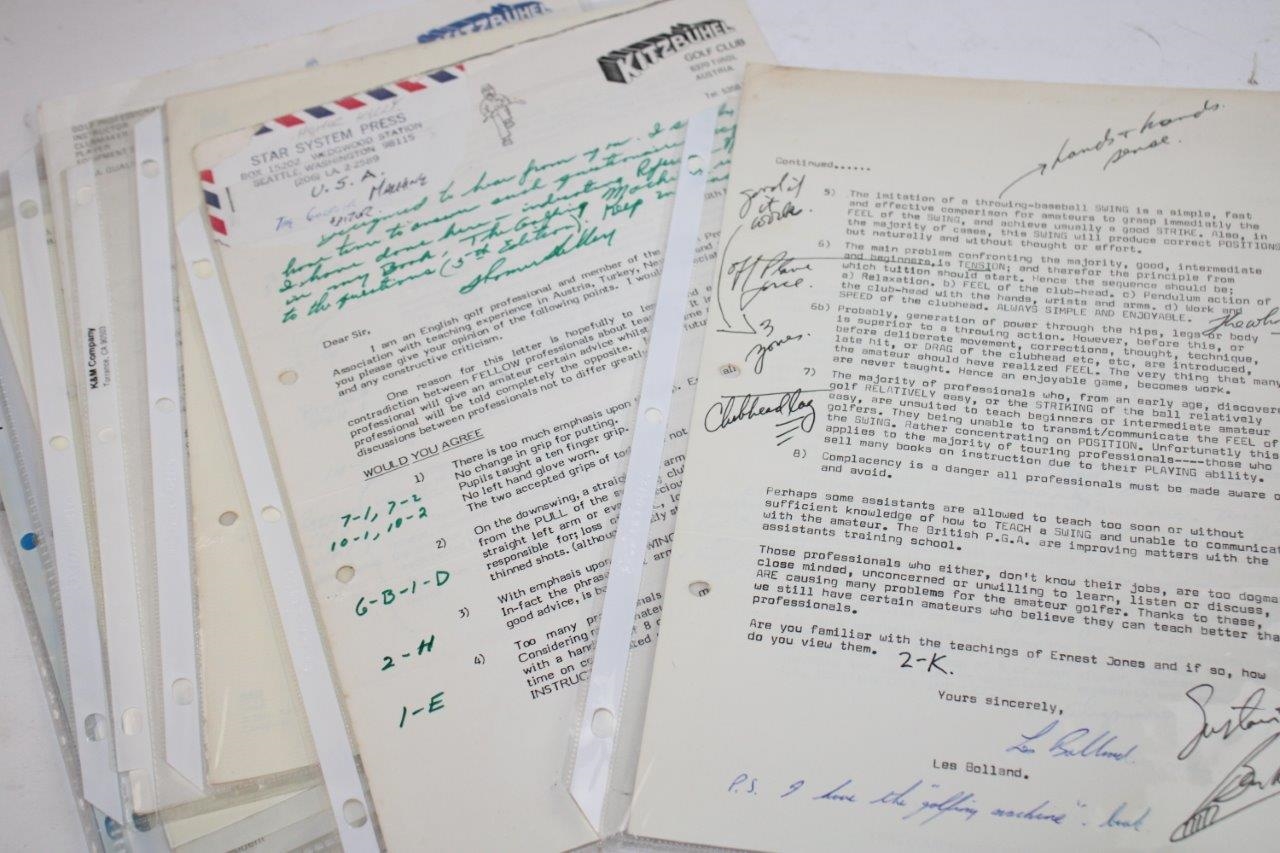 KITZBÜHEL
KITZBÜHEL
GOLF CLUB
6370 TIROL
AUSTRIA
GOLF PROFESSIONAL
INSTRUCTOR
CLUBMAKER
PLAYER
K&M Company
Torrance, CA 90503
STAR SYSTEM PRESS
BOX 15202 WEDGWOOD STATION
SEATTLE, WASHINGTON 98115
(206) LA. 2-2589
U.S.A.
EDITOR.
to hear from you. I
have time to answer such questionaires
I have done here is indicating
in my Book, The Golfing Machine
to the questions (5th Edition). Keep in
Homer Kelley
Dear Sir,
I am an English golf professional and member of the
Association with teaching experience in Austria, Turkey,
you please give your opinion of the following points. I would
and any constructive criticism.
One reason for this letter is hopefully to
contradiction between FELLOW professionals about
professional will give an amateur certain advice whilst
professional will be told completely the opposite.
discussions between professionals not to differ greatly
WOULD YOU AGREE
1) There is too much emphasis upon
No change in grip for putting.
Pupils taught a ten finger grip.
No left hand glove worn.
The two accepted grips of
7-1, 7-2
10-1, 10-2
2) On the downswing, a straight
from the PULL of the
straight left arm or
responsible for; loss
thinned shots. (although
6-B-1-D
3) With emphasis upon
In-fact the phrase
good advice, is
2-H
4) Too many
Considering
with a
time on
INSTRUC
1-E
Continued......
hands & hands
sense.
good if
it
works.
off Plane
force.
3
zones.
Clubhead lag
5) The imitation of a throwing-baseball SWING is a simple, fast
and effective comparison for amateurs to grasp immediately the
FEEL of the SWING, and achieve usually a good STRIKE. Also, in
the majority of cases, this SWING will produce correct POSITIONS
but naturally and without thought or effort.
6) The main problem confronting the majority, good, intermediate
and beginners, is TENSION; and therefor the principle from
which tuition should start. Hence the sequence should be;
a) Relaxation. b) FEEL of the club-head. c) Pendulum action of
the club-head with the hands, wrists and arms. d) Work and
SPEED of the clubhead. ALWAYS SIMPLE AND ENJOYABLE.
6b) Probably, generation of power through the hips, legs or body
is superior to a throwing action. However, before this, or
before deliberate movement, corrections, thought, technique,
late hit, or DRAG of the clubhead etc, etc, are introduced,
the amateur should have realized FEEL. The very thing that many
are never taught. Hence an enjoyable game, becomes work.
7) The majority of professionals who, from an early age, discover
golf RELATIVELY easy, or the STRIKING of the ball relatively
easy, are unsuited to teach beginners or intermediate amateur
golfers. They being unable to transmit/communicate the FEEL of
the SWING. Rather concentrating on POSITION. Unfortunatly this
applies to the majority of touring professionals----those who
sell many books on instruction due to their PLAYING ability.
8) Complacency is a danger all professionals must be made aware
and avoid.
Perhaps some assistants are allowed to teach too soon or without
sufficient knowledge of how to TEACH a SWING and unable to
with the amateur. The British P.G.A. are improving matters with the
assistants training school.
Those professionals who either, don't know their jobs, are too
close minded, unconcerned or unwilling to learn, listen or discuss,
ARE causing many problems for the amateur golfer. Thanks to these,
we still have certain amateurs who believe they can teach better
professionals.
Are you familiar with the teachings of Ernest Jones and if so, how
do you view them. 2-K.
Yours sincerely,
Les Bolland.
Les Bolland.
P.S. I have the "golfing machine" - book